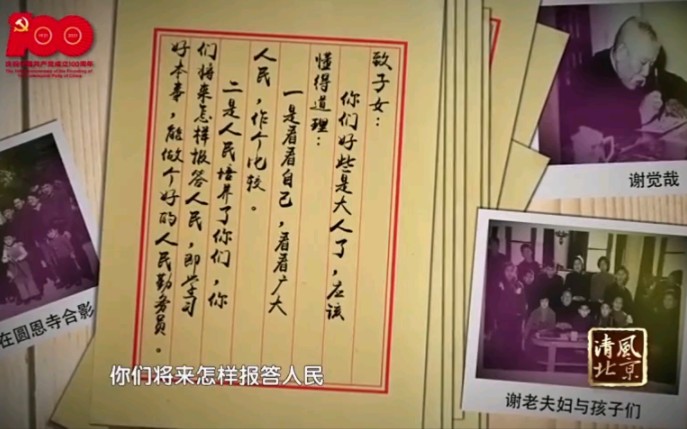 100
庆祝中国共产党成立100周年
The 100th Anniversary of the Founding of
The Communist Party of China
致子女：
你们好些是大人了，应该
懂得道理：
一是看看自己，看看广大
人民，作个比较。
二是人民培养了你们，你
们将来怎样报答人民，即学习
好本事，能做个好的人民勤务员。
谢觉哉
在圆恩寺合影
谢老夫妇与孩子们
清風
北京
你们将来怎样报答人民